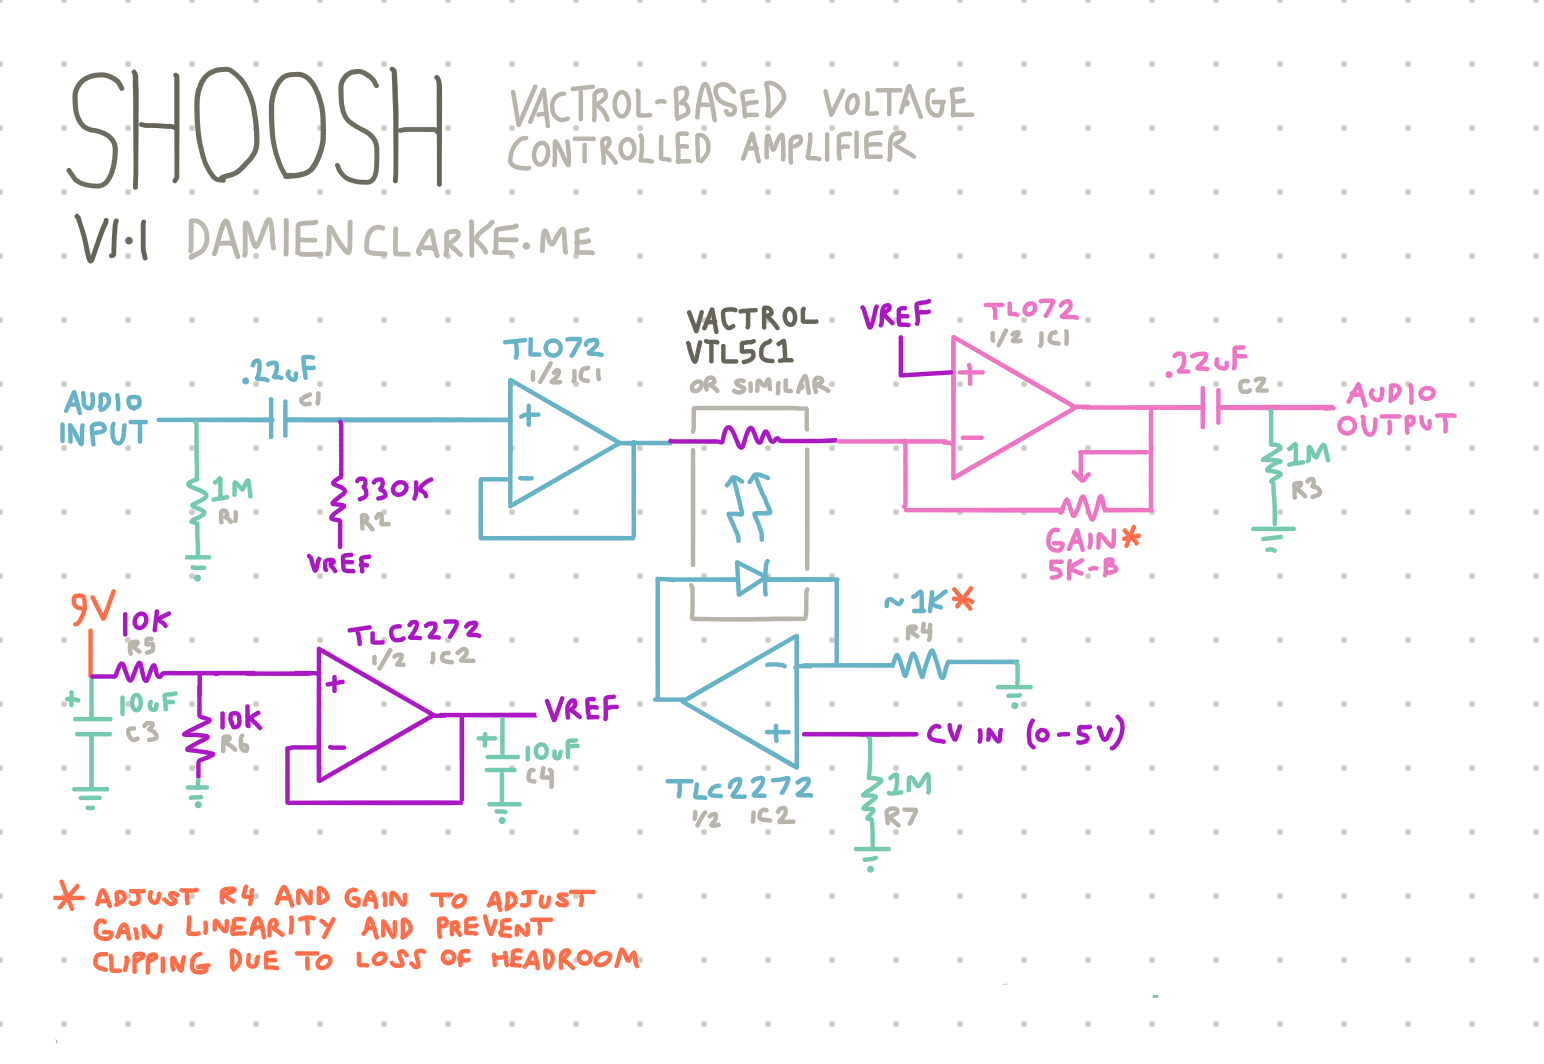 SHOOSH
VACTROL-BASED VOLTAGE
CONTROLLED AMPLIFIER
V1.1 DAMIENCLARKE.ME
AUDIO
INPUT
.22uF
C1
1M
R1
330K
R2
VREF
TL072
1/2 IC1
+
-
VACTROL
VTL5C1
OR SIMILAR
VREF
TL072
1/2 IC1
+
-
GAIN*
5K-B
.22uF
C2
1M
R3
AUDIO
OUTPUT
9V
10K
R5
+
10uF
C3
10K
R6
TLC2272
1/2 IC2
+
-
VREF
+
10uF
C4
~1K*
R4
-
+
TLC2272
1/2 IC2
CV IN (0-5V)
1M
R7
* ADJUST R4 AND GAIN TO ADJUST
GAIN LINEARITY AND PREVENT
CLIPPING DUE TO LOSS OF HEADROOM